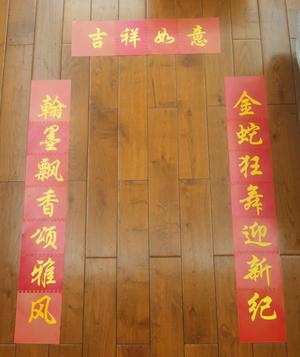 吉祥如意
金蛇狂舞迎新纪
翰墨飘香颂雅风